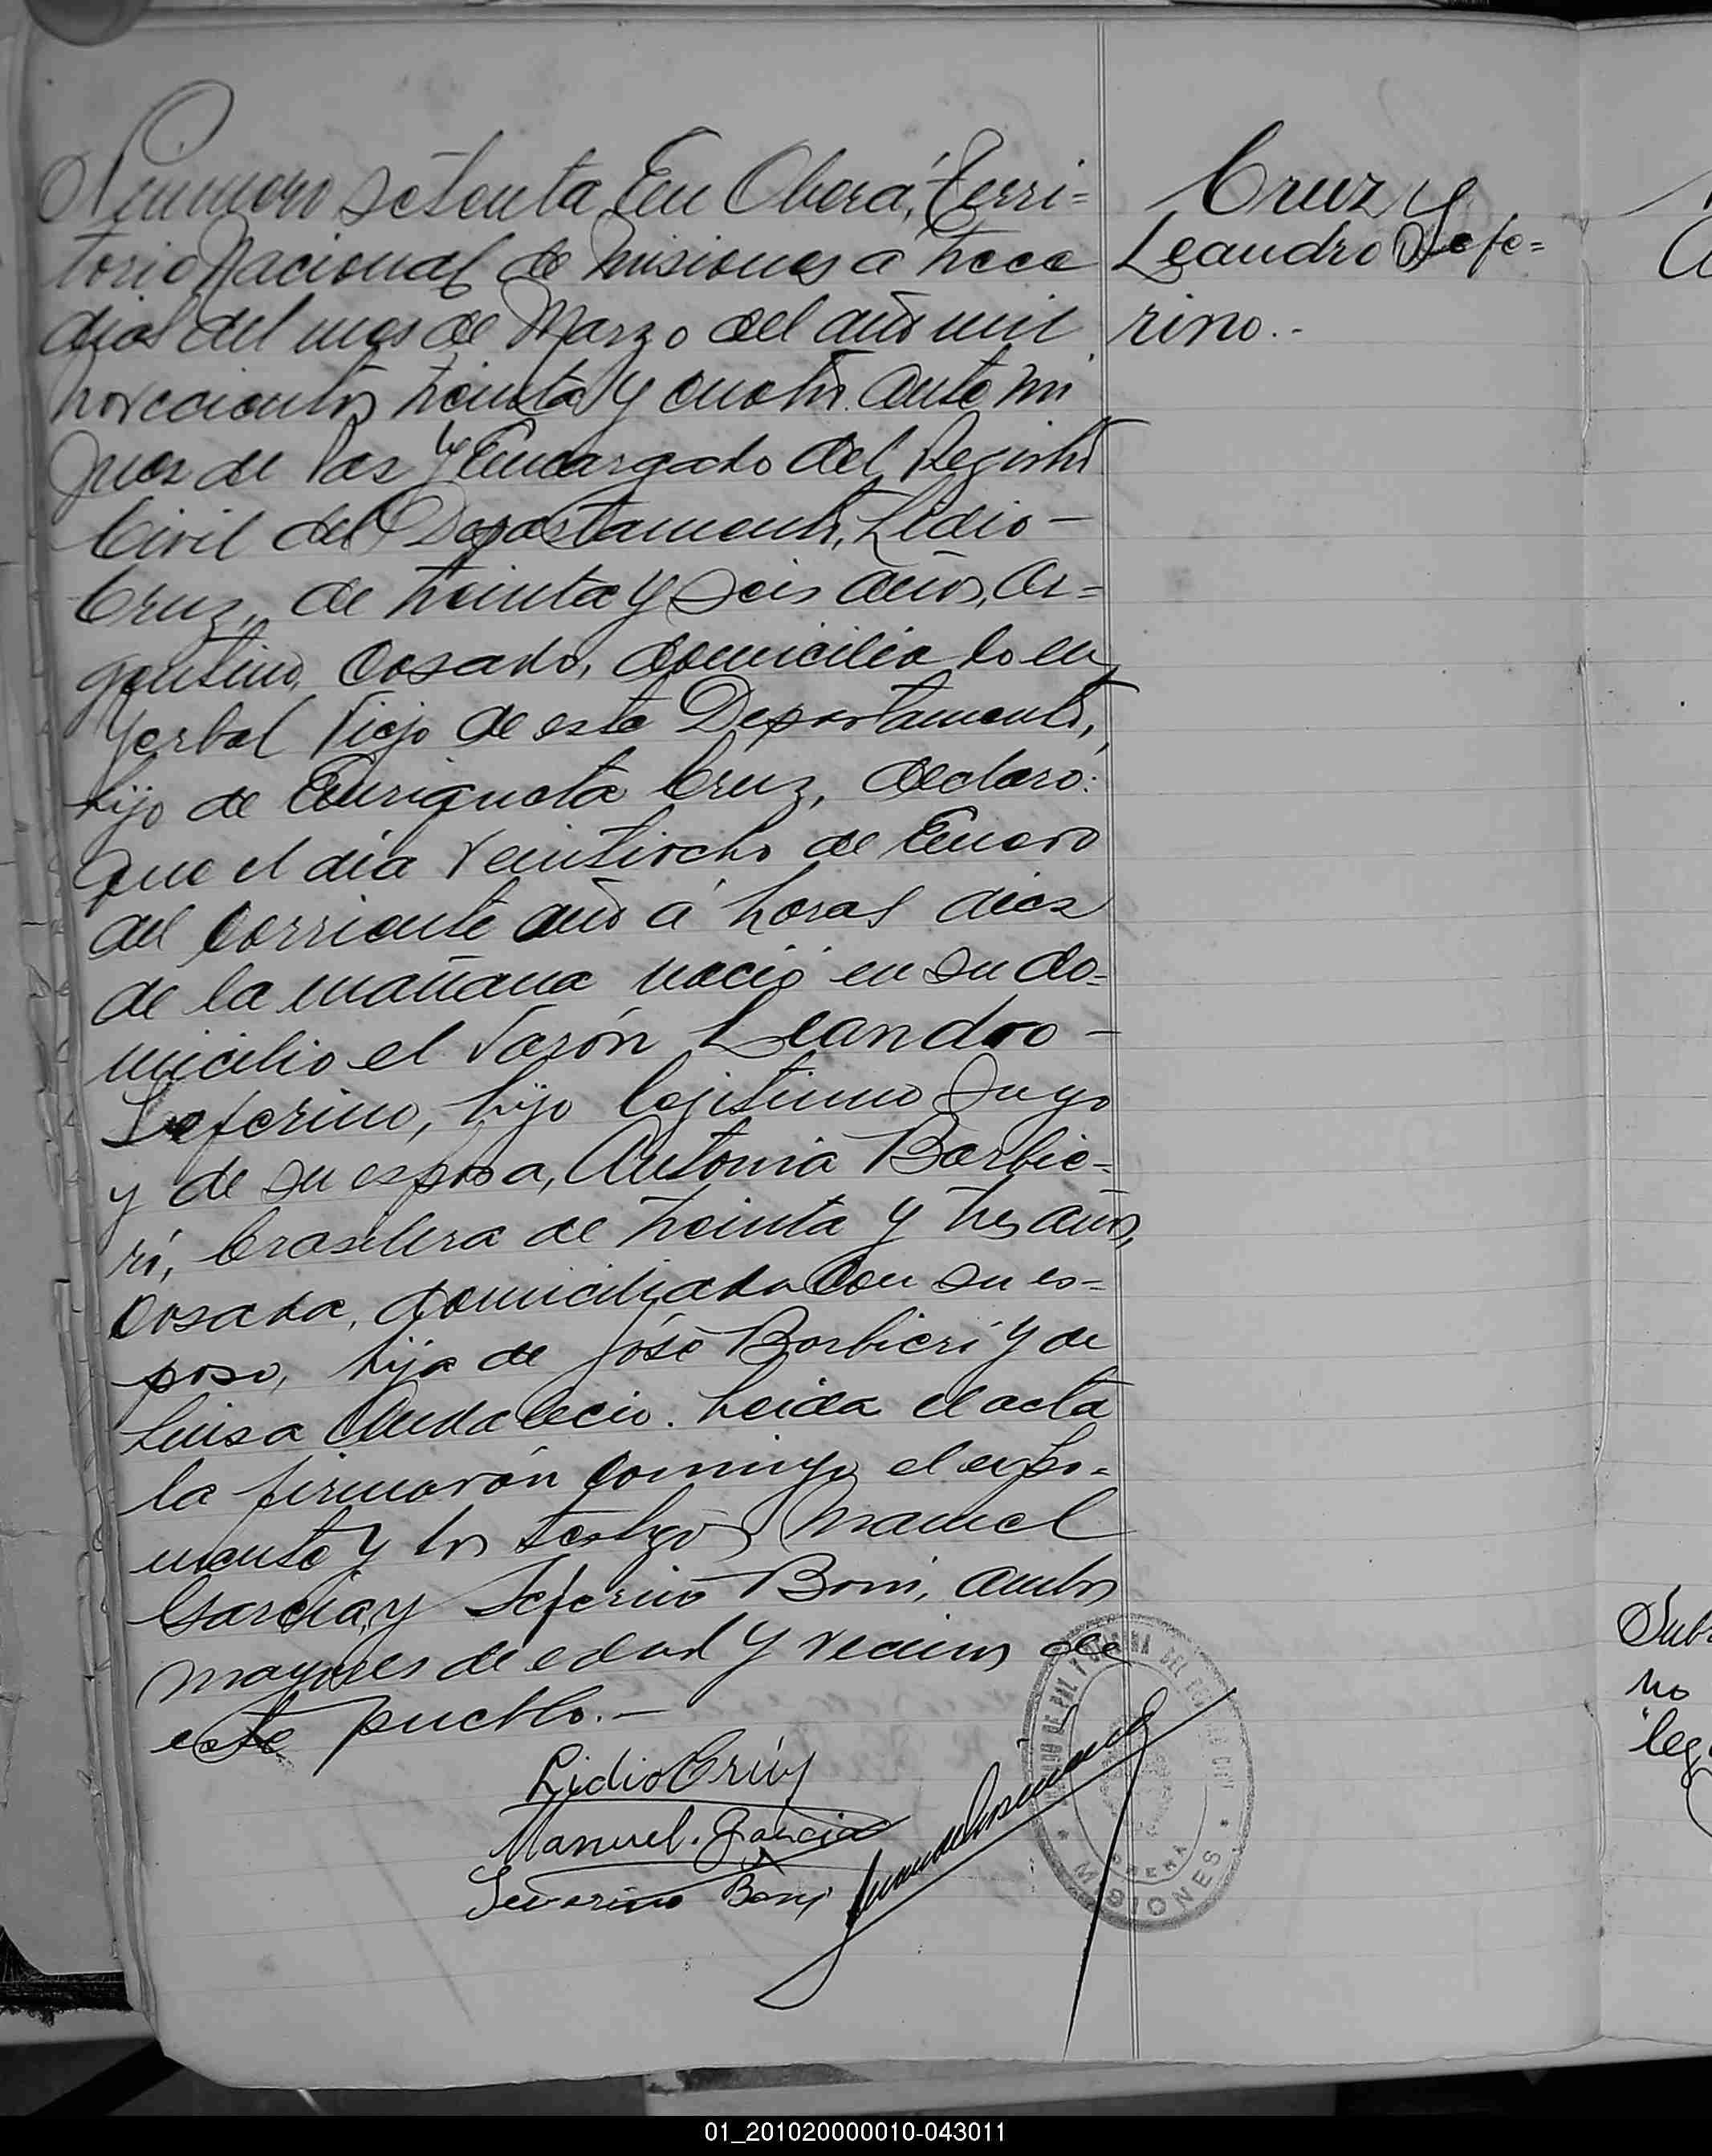 Número setenta En Oberá, Terri=
torio Nacional de Misiones a trece
dias del mes de Marzo del año mil
novecientos treinta y cuatro. Ante mi
Juez de Paz y Encargado del Registro
Civil del Departamento, Lidio -
Cruz, de treinta y seis años, ar=
gentino, casado, domicilia do en
Yerbal Viejo de este Departamento,
hijo de Enriqueta Cruz, declaro:
que el día veintiocho de Enero
del corriente año á horas diez
de la mañana nació en su do=
micilio el varón Leandro -
Seferino, hijo legitimo suyo
y de su esposa, Antonia Barbie=
ri, brasilera de treinta y tres años,
casada, domiciliada con su es=
poso, hija de José Barbieri y de
Luisa Andalecio. Leida el acta
la firmarón conmigo el expo=
nente y los testigos Manuel
Garcia, y Seferino Boni, ambos
mayores de edad y vecinos de
este pueblo. -
Lidio Cruz
Manuel. Garcia
Severino Boni
Cruz
Leandro Sefe=
rino. -
JUZGADO DE PAZ Y OFICINA DEL REGISTRO CIVIL
OBERA
MISIONES
no
01_201020000010-043011